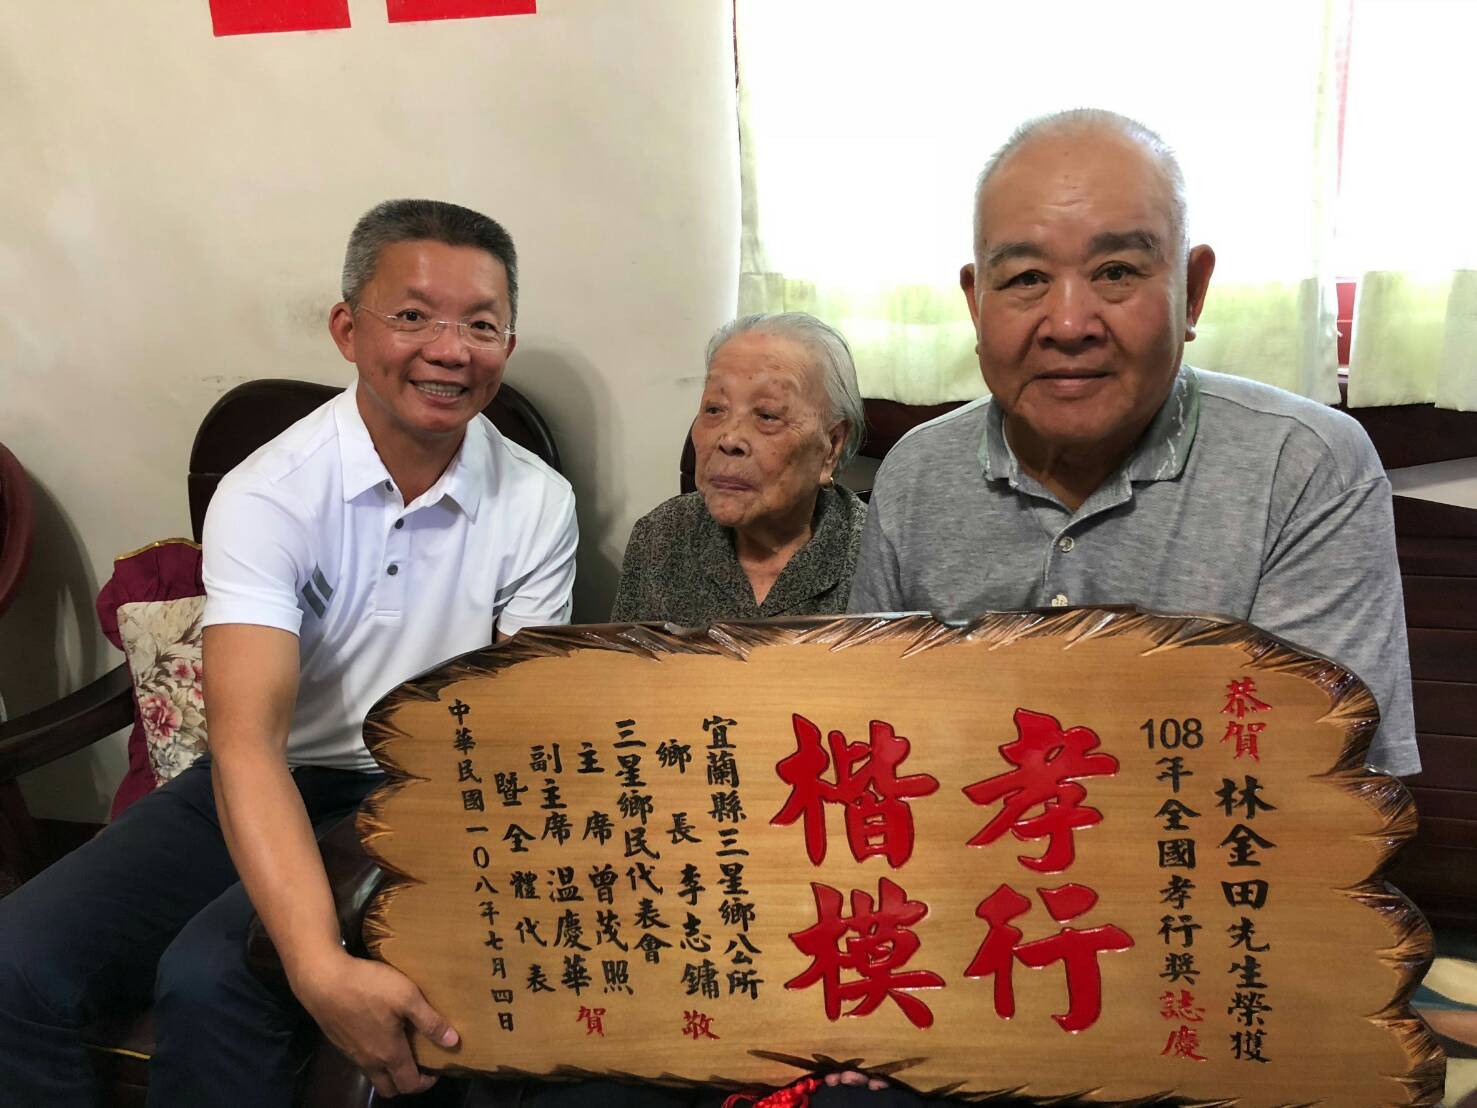 恭賀
林金田先生榮獲
108年全國孝行獎誌慶
孝行
楷模
宜蘭縣三星鄉公所
鄉長李志鏞敬
三星鄉民代表會
主席曾茂照
副主席溫慶華賀
暨全體代表
中華民國一0八年七月四日